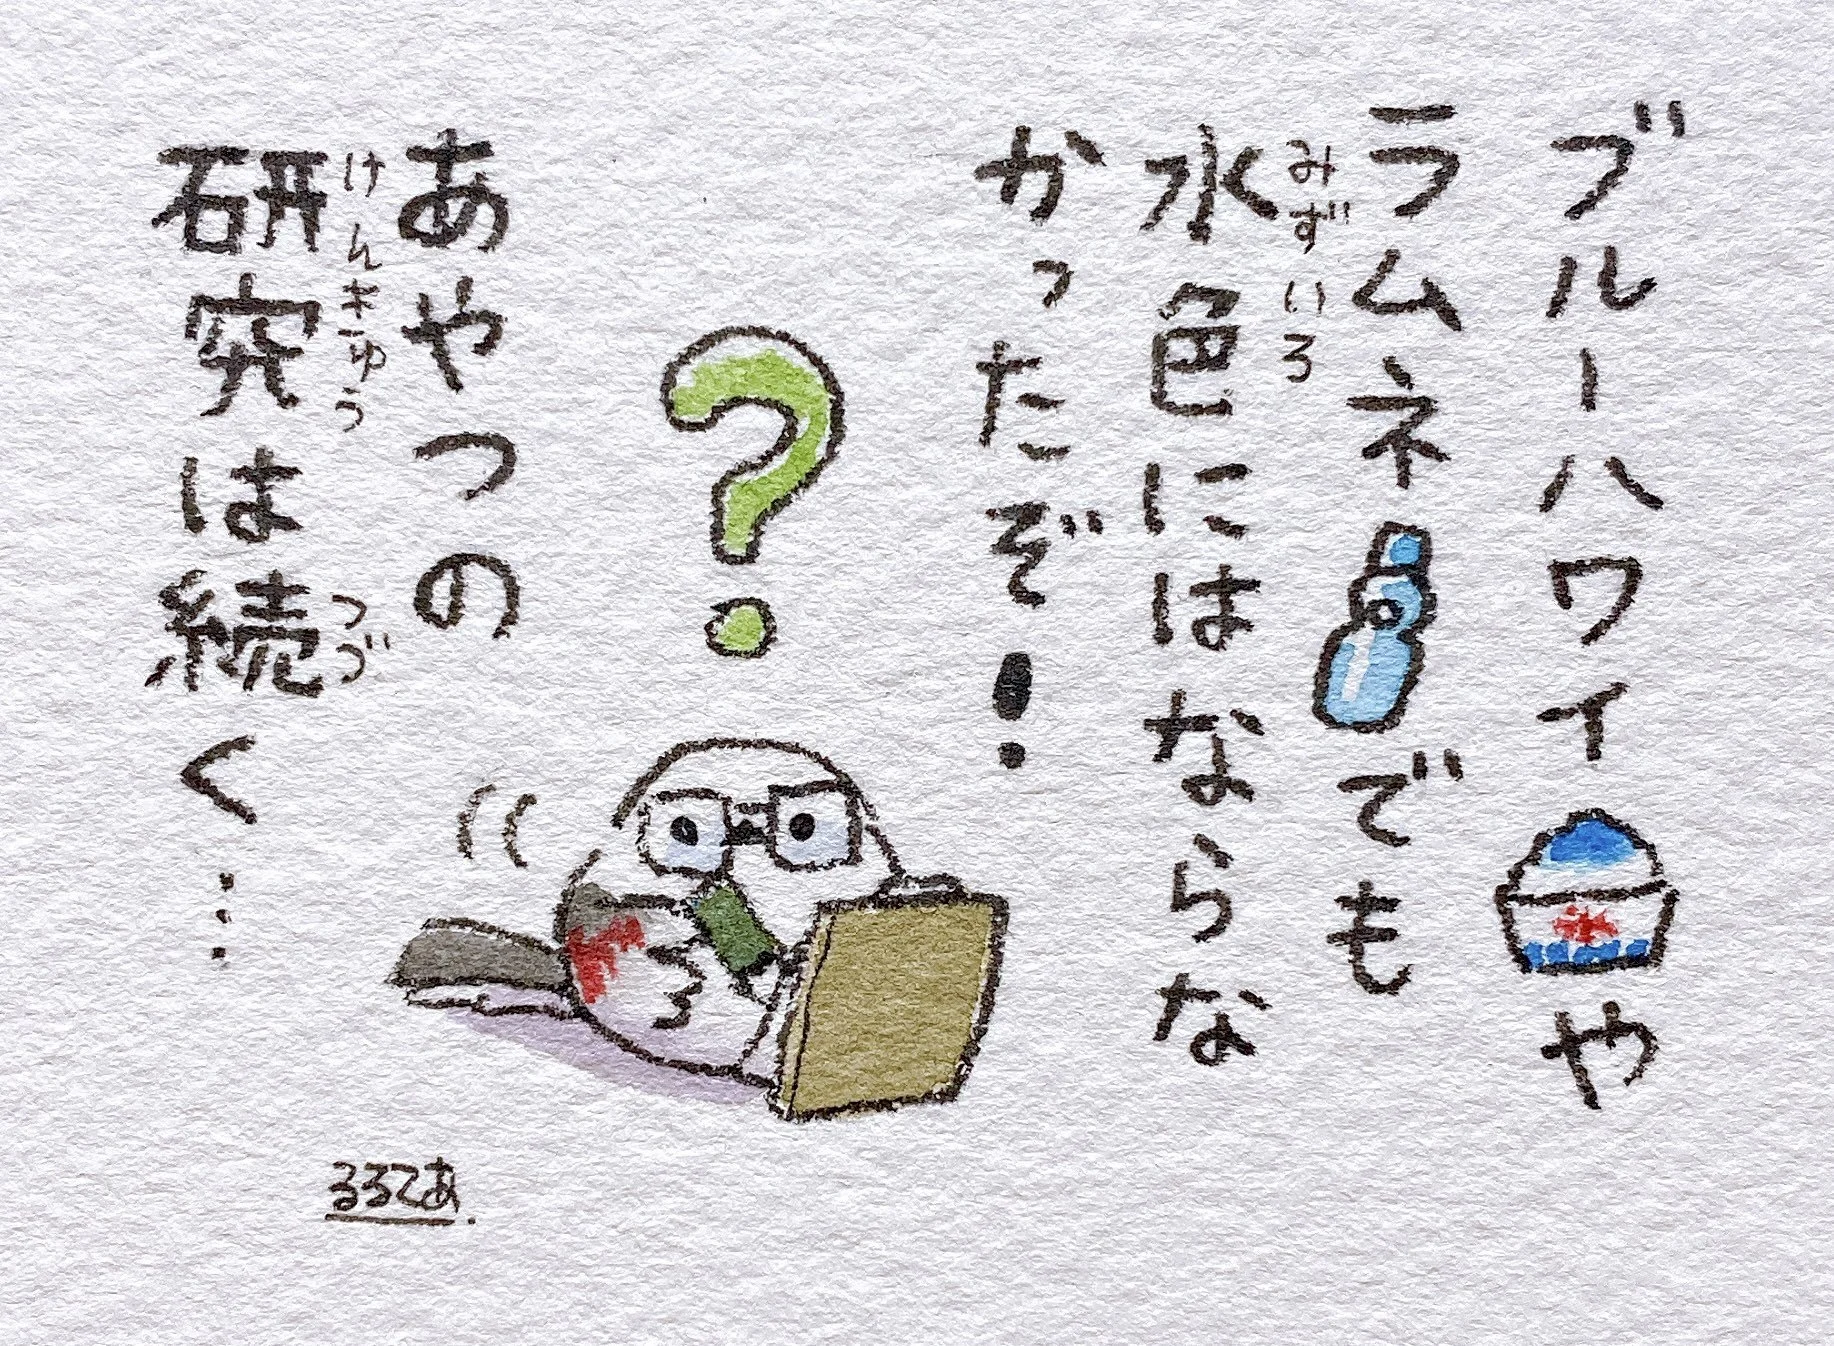 ブルーハワイや
ラムネでも
水色にはならな
みずいろ
かったぞ!
?
あやつの
研究は続く…
けんきゅう
つづ
るるてあ.